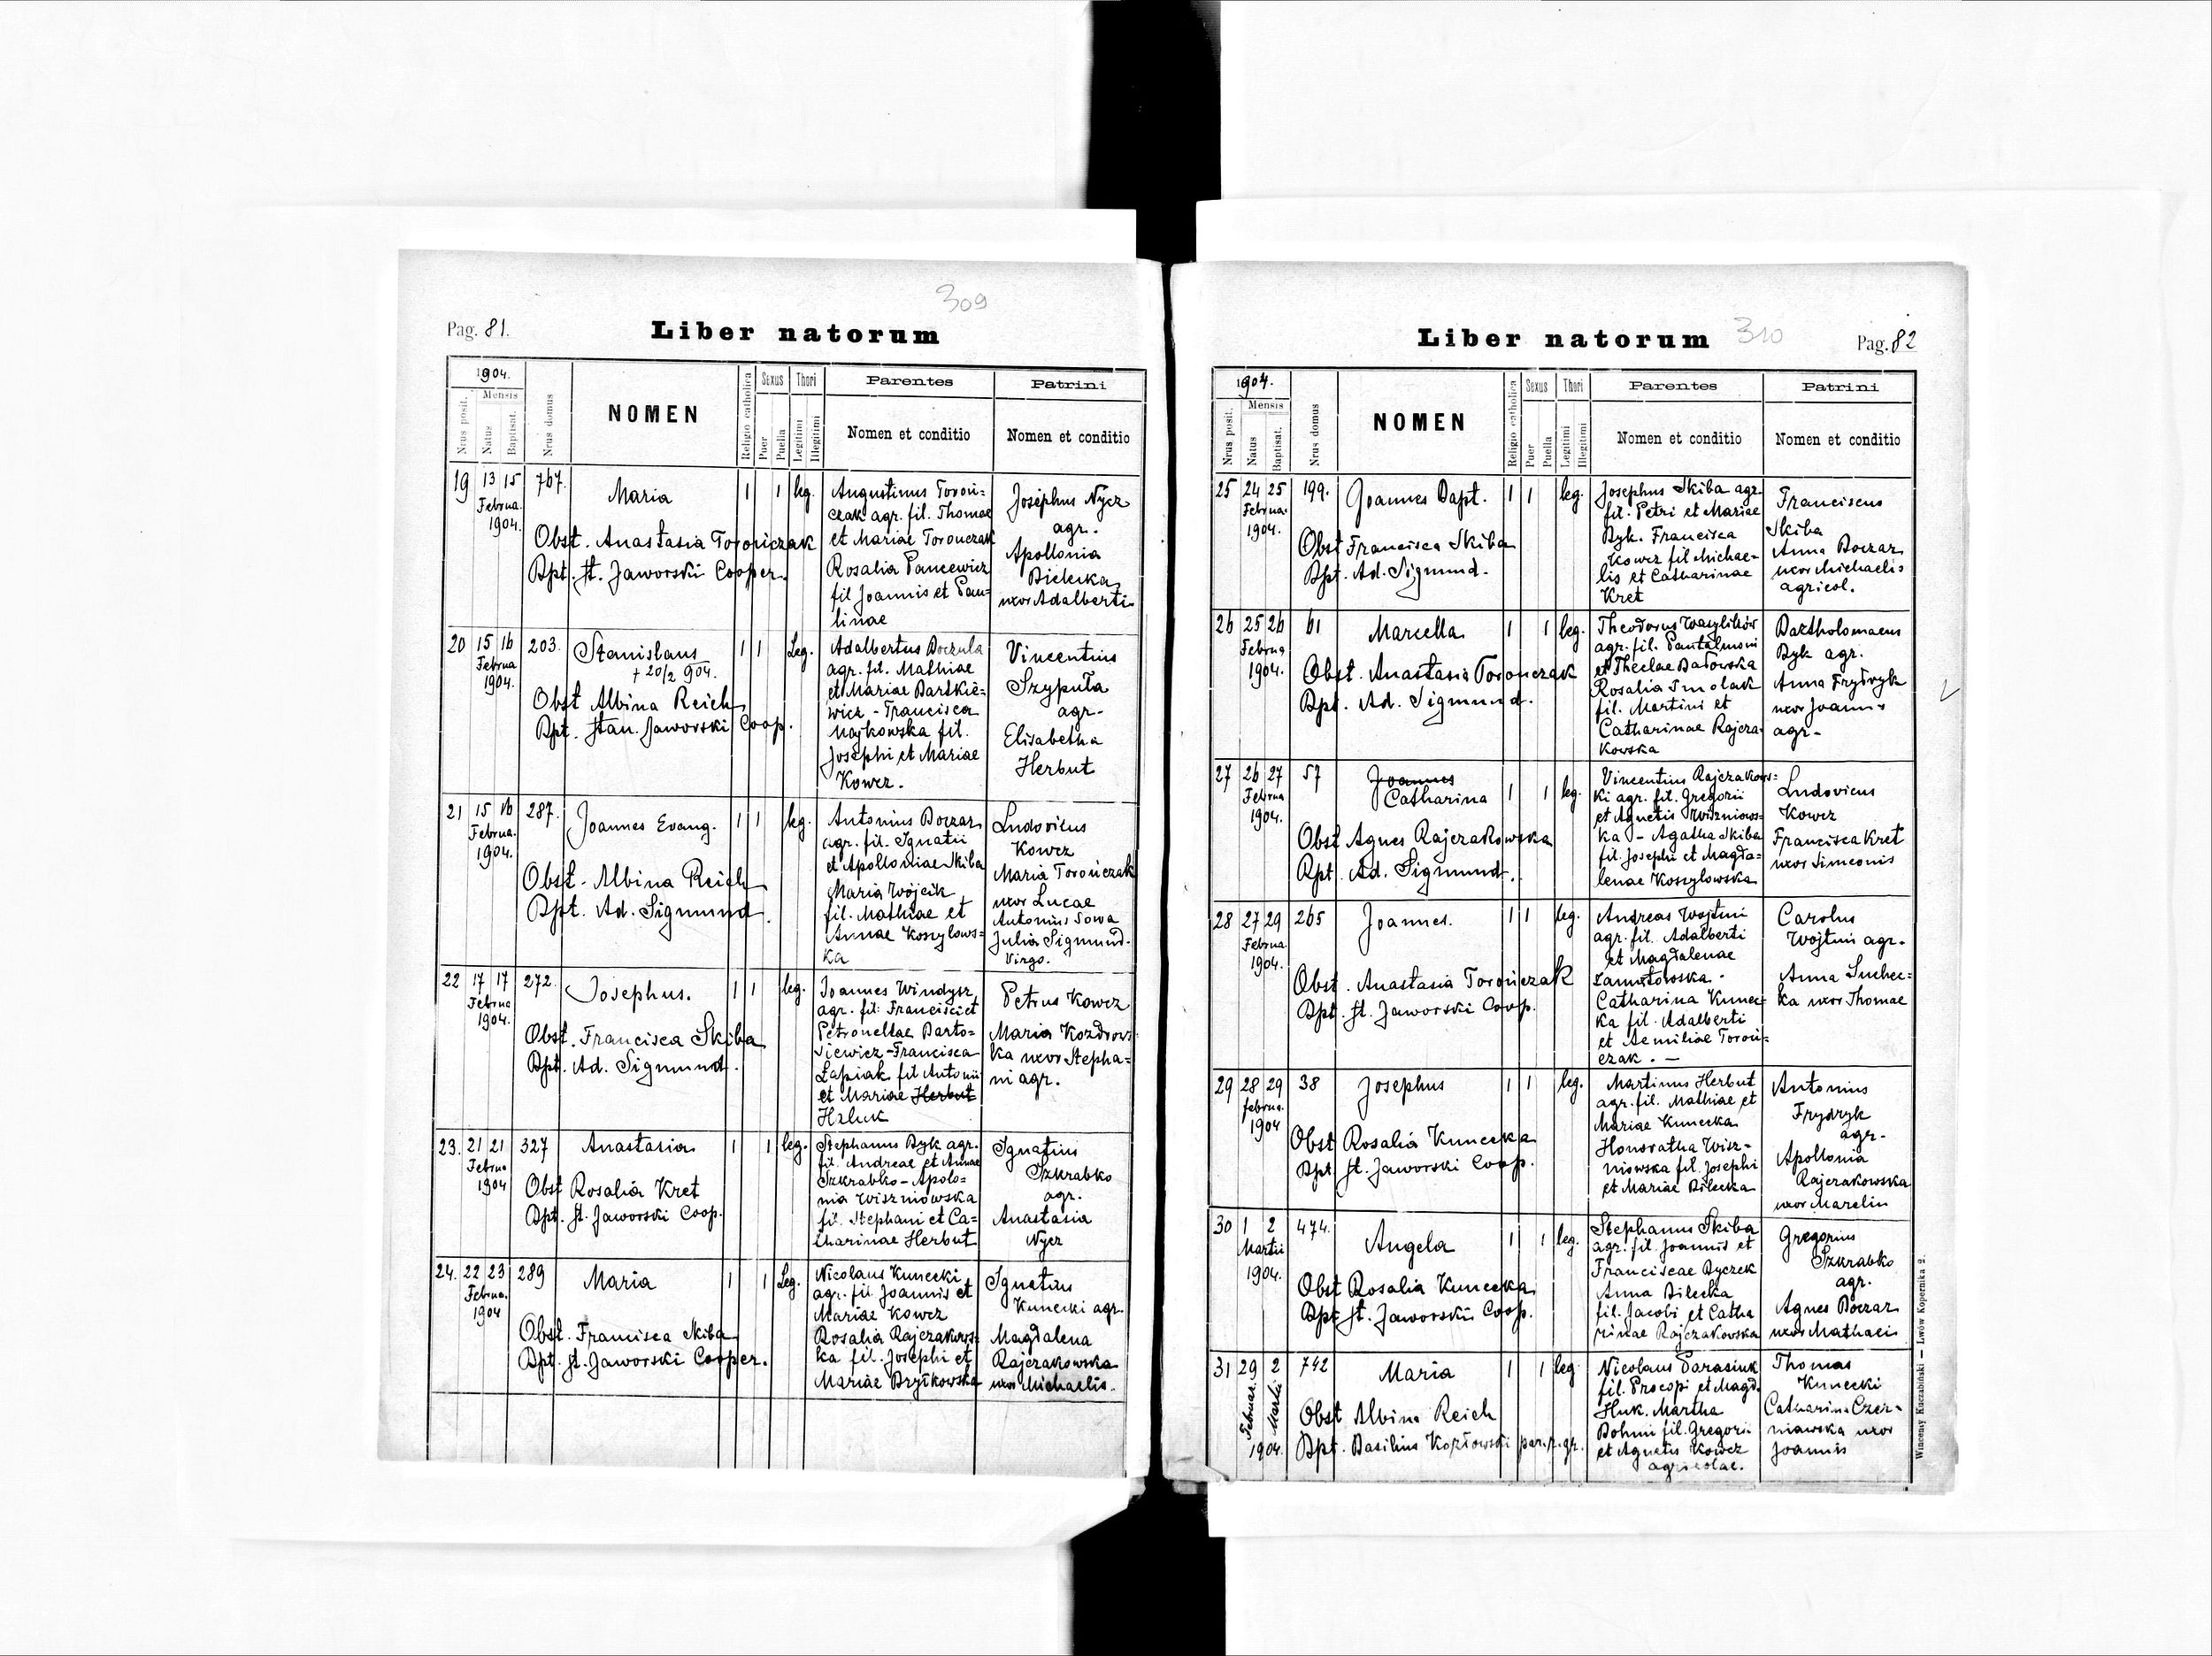 309
Pag. 81.
Liber natorum
1904.
Mensis
Nrus posit.
Natus
Baptisat.
Nrus domus
NOMEN
Religio catholica
Sexus
Puer
Puella
Thori
Legitimi
Illegitimi
Parentes
Nomen et conditio
Patrini
Nomen et conditio
19 13 15 767. Maria 1 1 leg.
Februa.
1904.
Obst. Anastasia Torończak
Bpt. St. Jaworski Cooper.
Augustinus Toroń=
czak agr. fil. Thomae
et Mariae Torończak
Rosalia Pancewicz
fil Joannis et Pau=
linae
Josephus Nycz
agr.
Apollonia
Bielecka
uxor Adalberti
20 15 16 203. Stanislaus 1 1 Leg.
Februa
1904.
+ 20/2 904.
Obst Albina Reich
Bpt. Stan. Jaworski Coop.
Adalbertus Boczula
agr. fil. Mathiae
et Mariae Bartkie=
wicz - Francisca
Majkowska fil.
Josephi et Mariae
Kowcz.
Vincentius
Szypuła
agr-
Elisabetha
Herbut
21 15 16 287. Joannes Evang. 1 1 leg.
Februa.
1904.
Obst. Albina Reich
Bpt. Ad. Sigmund.
Antonius Boczar
agr. fil. Ignatii
et Apolloniae Skiba
Maria Wójcik
fil. Mathiae et
Annae Koszylows=
ka
Ludovicus
Kowcz
Maria Torończak
uxor Lucae
Antonius Sowa
Julia Sigmund.
Virgo.
22 17 17 272. Josephus. 1 1 leg.
Februa
1904.
Obst. Francisca Skiba
Bpt. Ad. Sigmund.
Joannes Windysz
agr. fil. Francisci et
Petronellae Barto=
siewicz - Francisca
Łapiak fil Antonii
et Mariae Herbut
Hzluk
Petrus Kowcz
Maria Kozdrows
ka uxor Stepha=
ni agr.
23. 21 21 327 Anastasia 1 1 leg.
Februa
1904
Obst Rosalia Kret
Bpt. St. Jaworski Coop.
Stephanus Byk agr.
fil. Andreae et Annae
Szkrabko - Apolo=
nia Wiszniowska
fil. Stephani et Ca=
tharinae Herbut
Ignatius
Szkrabko
agr.
Anastasia
Nycz
24. 22 23 289 Maria 1 1 Leg.
Februa.
1904
Obst. Francisca Skiba
Bpt. St. Jaworski Cooper.
Nicolaus Kunecki
agr. fil Joannis et
Mariae Kowcz
Rosalia Rajczakows=
ka fil. Josephi et
Mariae Brytkowska
Ignatius
Kunecki agr.
Magdalena
Rajczakowska
uxor Michaelis.
Liber natorum
310
Pag. 82
1904.
Mensis
Nrus posit.
Natus
Baptisat.
Nrus domus
NOMEN
Religio catholica
Sexus
Puer
Puella
Thori
Legitimi
Illegitimi
Parentes
Nomen et conditio
Patrini
Nomen et conditio
25 24 25 199. Joannes Bapt. 1 1 leg.
Februa.
1904.
Obst Francisca Skiba
Bpt. Ad. Sigmund.
Josephus Skiba agr.
fil. Petri et Mariae
Byk. Francisca
Kowcz fil Michae=
lis et Catharinae
Kret
Franciscus
Skiba
Anna Boczar
uxor Michaelis
agricol.
26 25 26 61 Marcella 1 1 leg.
Februa
1904.
Obst. Anastasia Torończak
Bpt. Ad. Sigmund.
Theodorus Wasylków
agr. fil. Pantalmoni
et Theclae Batowska
Rosalia Smolak
fil. Martini et
Catharinae Rajcza-
kowska
Bartholomaeus
Byk agr.
Anna Frydryk
uxor Joannis
agr-
27 26 27 57 Joannes 1 1 leg.
Catharina
Februa
1904.
Obst Agnes Rajczakowska
Bpt. Ad. Sigmund.
Vincentius Rajczakows=
ki agr. fil. Gregorii
et Agnetis Wiszniows=
ka - Agatha Skiba
fil. Josephi et Magda=
lenae Koszylowska
Ludovicus
Kowcz
Francisca Kret
uxor Simeonis
28 27 29 265 Joannes. 1 1 leg.
Februa
1904.
Obst. Anastasia Torończak
Bpt. St. Jaworski Coop.
Andreas Wojtuń
agr. fil. Adalberti
et Magdalenae
Catharina Kunec=
ka fil. Adalberti
et Aemiliae Toroń=
czak. —
Carolus
Wojtuń agr.
Anna Suchec=
ka uxor Thomae
29 28 29 38 Josephus 1 1 leg.
februa.
1904
Obst Rosalia Kunecka
Bpt St. Jaworski Coop.
Martinus Herbut
agr. fil. Mathiae et
Mariae Kunecka
Honoratha Wisz-
niowska fil. Josephi
et Mariae Bilecka
Antonius
Frydryk
agr-
Apollonia
Rajczakowska
uxor Marcelin
30 1 2 474. Angela 1 1 leg.
Martii
1904.
Obst Rosalia Kunecka
Bpt St. Jaworski Coop.
Stephanus Skiba
agr. fil. Joannis et
Franciscae Byczek
Anna Bilecka
fil. Jacobi et Catha
rinae Rajczakowska
Gregorius
Szkrabko
agr.
Agnes Boczar
uxor Mathaei
31 29 2 742 Maria 1 1 leg.
Februar.
Martii
1904.
Obst Albina Reich
Bpt. Basilius Kozłowski par. r. gr.
Nicolaus Parasiuk
fil. Procopi et Magd.
Huk. Martha
Bohun fil. Gregorii
et Agnetis Kowcz
agricolae.
Thomas
Kunecki
Catharina Czer-
niawska uxor
Joannis
Wincenty Kuczabiński — Lwów Kopernika 2.